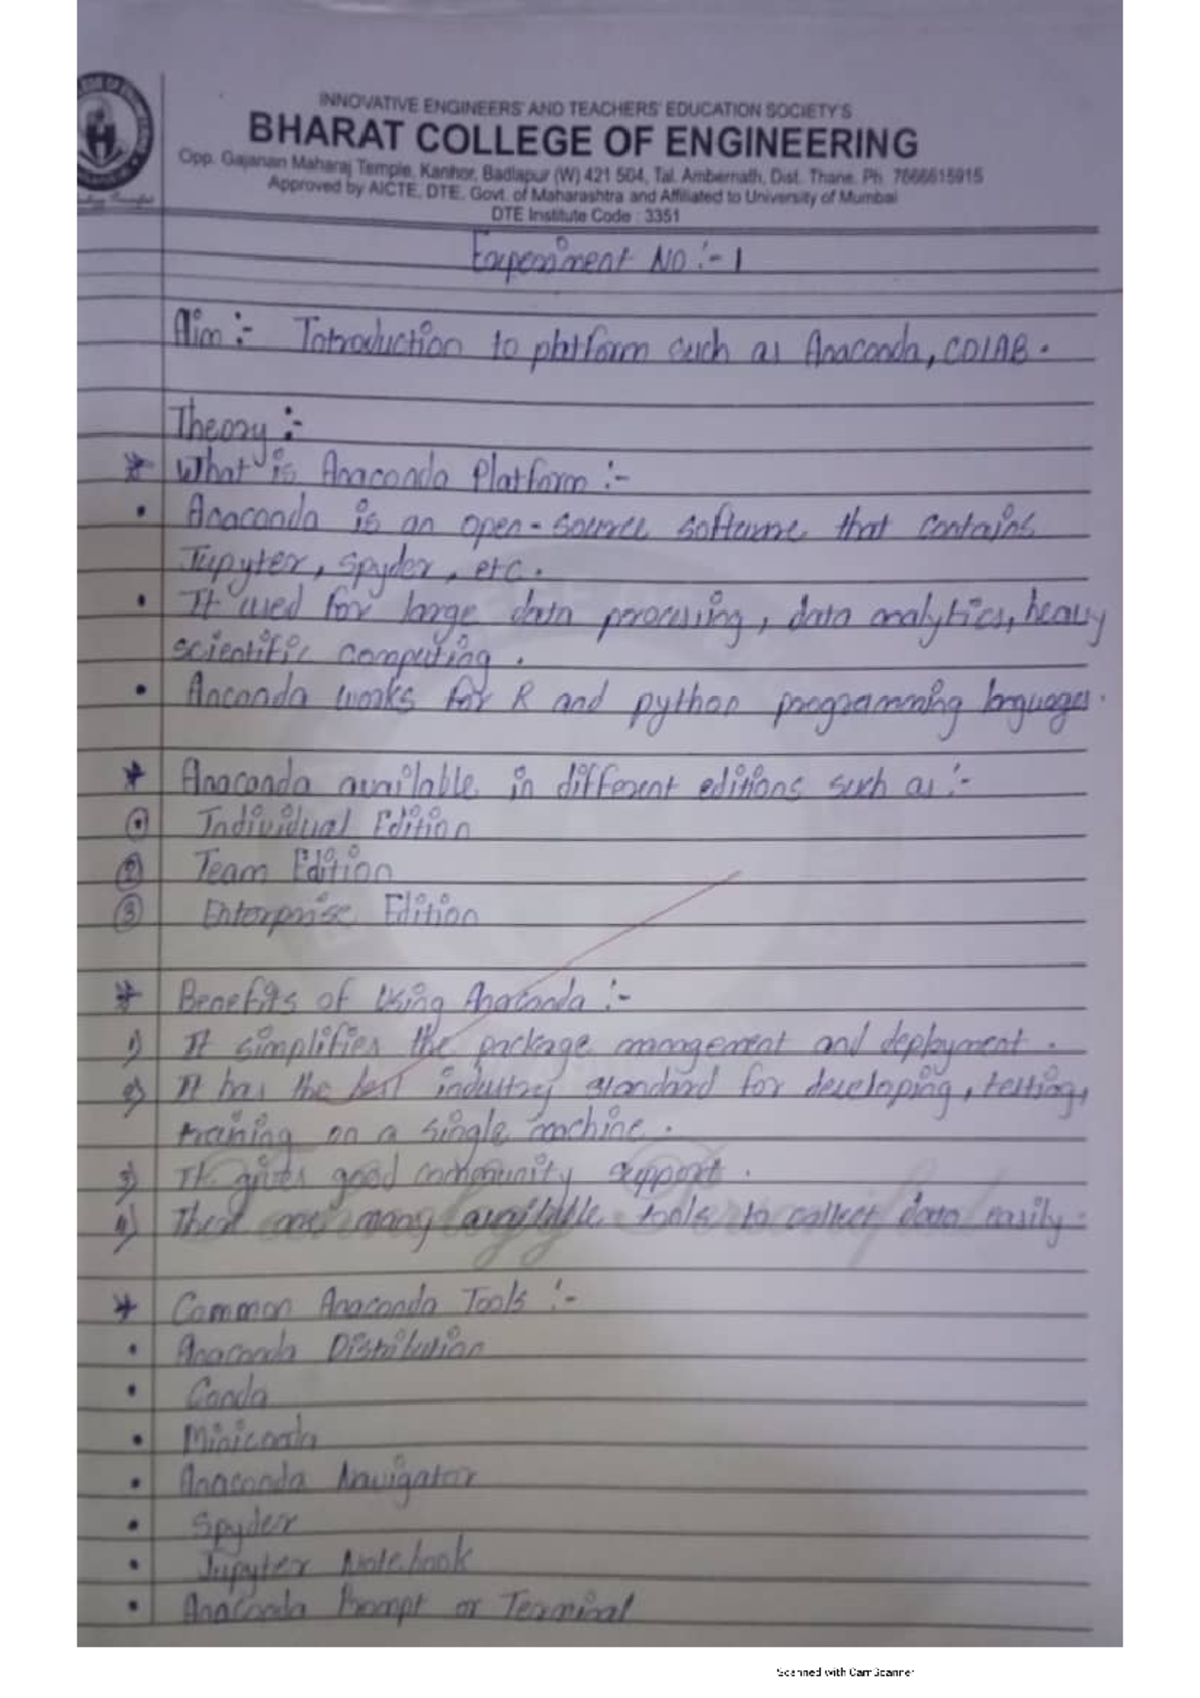 INNOVATIVE ENGINEERS' AND TEACHERS' EDUCATION SOCIETY'S
BHARAT COLLEGE OF ENGINEERING
Opp. Gajanan Maharaj Temple, Kanhor, Badlapur (W) 421 504, Tal. Ambernath, Dist. Thane. Ph. 7666615915
Approved by AICTE, DTE, Govt. of Maharashtra and Affiliated to University of Mumbai
DTE Institute Code : 3351
Experiment NO :- 1
Aim :- Introduction to platform such as Anaconda, COLAB.
Theory :-
* What is Anaconda Platform :-
• Anaconda is an open-source software that contains
Jupyter, Spyder, etc.
• It used for large data processing, data analytics, heavy
scientific computing.
• Anconda works for R and python programming languages.
* Anaconda available in different editions such as :-
① Individual Edition
② Team Edition
③ Enterprise Edition
* Benefits of Using Anaconda :-
1) It simplifies the package mangement and deployment.
2) It has the best industry standard for developing, testing,
training on a single machine.
3) It gives good community support.
4) There are many available tools to collect data easily.
* Common Anaconda Tools :-
• Anaconda Distribution
• Conda
• Miniconda
• Anaconda Navigator
• Spyder
• Jupyter Notebook
• Anaconda Prompt or Terminal
Scanned with CamScanner